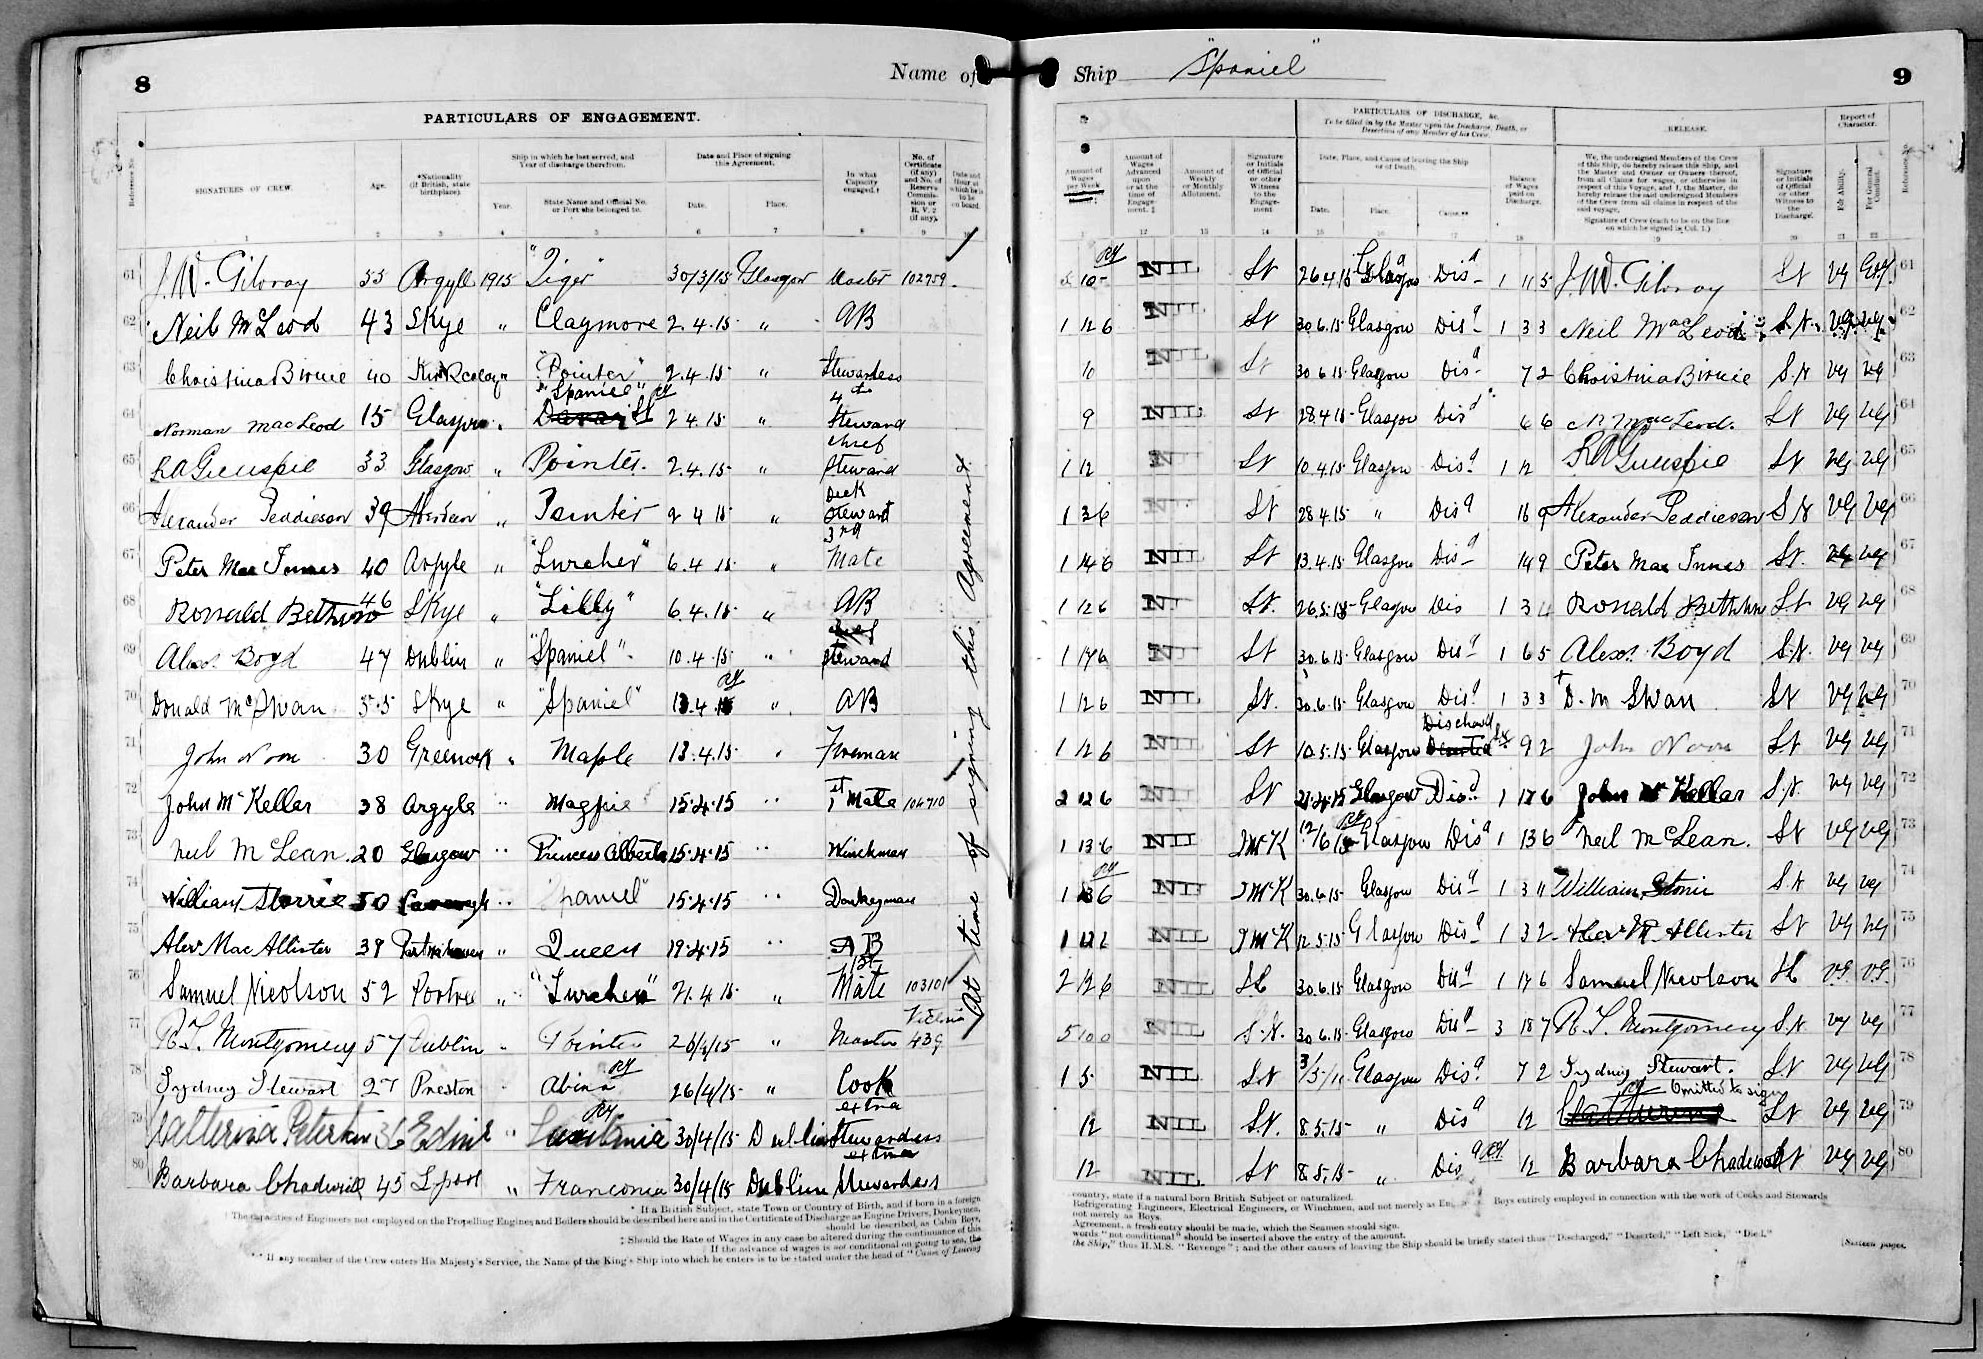 8 Name of Ship "Spaniel" 9
PARTICULARS OF ENGAGEMENT.
Reference No.
SIGNATURES OF CREW.
Age.
*Nationality (if British, state birthplace).
Ship in which he last served, and Year of discharge therefrom.
Year.
State Name and Official No. or Port she belonged to.
Date and Place of signing this Agreement.
Date.
Place.
In what Capacity engaged.†
No. of Certificate (if any) and No. of Reserve Commission or R.V.2 (if any).
Date and Hour at which he is to be on board.
1 2 3 4 5 6 7 8 9 10
61 J. W. Gilvray 55 Argyll 1915 "Tiger" 30/3/15 Glasgow Master 102759
62 Neil McLeod 43 Skye " Claymore 2.4.15 " AB
63 Christina Birnie 40 " "Pointer" 2.4.15 " Stewardess
64 Norman MacLeod 15 Glasgow " "Spaniel" 2.4.15 " 4th Steward
65 RA Gillespie 33 Glasgow " Pointer. 2.4.15 chief Steward
66 Alexander Peddieson 39 Aberdeen " Pointer 2 4 15 " Deck Steward
67 Peter Mac Innes 40 Argyle " "Lurcher" 6.4.15 " 3rd Mate
68 Ronald Bethune 46 Skye " "Lilly" 6.4.15 " AB
69 Alex. Boyd 47 Dublin " "Spaniel" 10.4.15 " Steward
70 Donald McSwan 55 Skye " "Spaniel" 13.4.15 " AB
71 John Noon 30 Greenock " Maple 13.4.15 " Fireman
72 John McKellar 38 Argyle " Magpie 15.4.15 " 1st Mate 104710
73 Neil McLean. 20 Glasgow " Princess Alberta 15.4.15 " Winchman
74 William Storrie 50 " Spaniel" 15.4.15 " Donkeyman
75 Alex MacAllister 39 " Queen 19.4.15 " AB
76 Samuel Nicolson 52 Portree " "Lurcher" 21.4.15 " 1st Mate 103101
77 R. T. Montgomery 57 Dublin " Pointer 26/4/15 " Master Victoria 439
78 Sydney Stewart 27 Preston " 26/4/15 " Cook
79 Catherina Peterkin 36 Edinr " Lusitania 30/4/15 Dublin extra Stewardess
80 Barbara Chadwick 45 Lpool " Franconia 30/4/15 Dublin extra Stewardess
At time of signing this Agreement.
* If a British Subject, state Town or Country of Birth, and if born in a foreign
† The capacities of Engineers not employed on the Propelling Engines and Boilers should be described here and in the Certificate of Discharge as Engine Drivers, Donkeymen,
should be described, as Cabin Boys,
‡ Should the Rate of Wages in any case be altered during the continuance of this
If the advance of wages is not conditional on going to sea, the
** If any member of the Crew enters His Majesty's Service, the Name of the King's Ship into which he enters is to be stated under the head of "Cause of Leaving
Amount of Wages per Week
Amount of Wages Advanced upon or at the time of Engagement.‡
Amount of Weekly or Monthly Allotment.
Signature or Initials of Official or other Witness to Engagement
PARTICULARS OF DISCHARGE, &c.
To be filled in by the Master upon the Discharge, Death, or Desertion of any Member of his Crew.
Date, Place, and Cause of leaving the Ship or of Death.
Date. Place. Cause.**
Balance of Wages paid on Discharge.
RELEASE.
We, the undersigned Members of the Crew of this Ship, do hereby release this Ship, and the Master and Owner or Owners thereof, from all Claims for wages, or otherwise in respect of this Voyage, and I, the Master, do hereby release the said undersigned Members of the Crew from all claims in respect of the said voyage.
Signature of Crew (each to be on the line on which he signed in Col. 1.)
Signature or Initials of Official or other Witness to the Discharge.
Report of Character.
For Ability.
For General Conduct.
Reference No.
12 13 14 15 16 17 18 19 20 21 22
5 10 - NIL St 26.4.15 Glasgow Disd 1 11 5 J. W. Gilvray St VG 61
1 12 6 NIL St 30.6.15 Glasgow Disd 1 3 3 Neil MacLeod S.N. VG VG 62
10 NIL St 30.6.15 Glasgow Disd 7 2 Christina Birnie S.N VG VG 63
9 NIL St 28.4.15 Glasgow Disd 6 6 N MacLeod. St VG VG 64
1 12 NIL St 10.4.15 Glasgow Disd 1 12 RA Gillespie St VG VG 65
1 3 6 NIL St 28.4.15 " Disd 16 9 Alexander Peddieson S.N VG VG 66
1 14 6 NIL St 13.4.15 Glasgow Disd 14 9 Peter Mac Innes St. VG VG 67
1 12 6 NIL St. 26.5.15 Glasgow Dis 1 3 4 Ronald Bethune St VG VG 68
1 17 6 NIL St 30.6.15 Glasgow Disd 1 6 5 Alex. Boyd S.N. VG VG 69
1 12 6 NIL St. 30.6.15 Glasgow Disd 1 3 3 D. M Swan St VG VG 70
1 12 6 NIL St 10.5.15 Glasgow Dischard 9 2 John Noon St VG VG 71
2 12 6 NIL St 21.4.15 Glasgow Disd 1 17 6 John McKellar S.N. VG VG 72
1 13 6 NIL JMcK 12/6/15 Glasgow Disd 1 13 6 Neil McLean. St VG VG 73
1 3 6 NIL JMcK 30.6.15 Glasgow Disd 1 3 11 William Storrie S.N VG VG 74
NIL JMcK 12.5.15 Glasgow Disd 1 3 2 Alex M. Allister St VG VG 75
2 12 6 NIL 30.6.15 Glasgow Disd 1 17 6 Samuel Nicolson VG. VG. 76
5 10 0 NIL S.N. 30.6.15 Glasgow Disd 3 18 7 R. T. Montgomery S.N VG VG 77
1 5 NIL St Glasgow Disd 7 2 Sydney Stewart. St VG VG 78
12 NIL St. 8.5.15 " Disd 12 Omitted to sign St VG VG 79
12 NIL St 8.5.15 " Disd 12 Barbara Chadwick St VG VG 80
country, state if a natural born British Subject or naturalized.
Refrigerating Engineers, Electrical Engineers, or Winchmen, and not merely as Boys entirely employed in connection with the work of Cooks and Stewards
not merely as Boys.
Agreement, a fresh entry should be made, which the Seamen should sign.
words "not conditional" should be inserted above the entry of the amount.
the Ship," thus H.M.S. "Revenge"; and the other causes of leaving the Ship should be briefly stated thus "Discharged," "Deserted," "Left Sick," "Died."
[Sixteen pages.